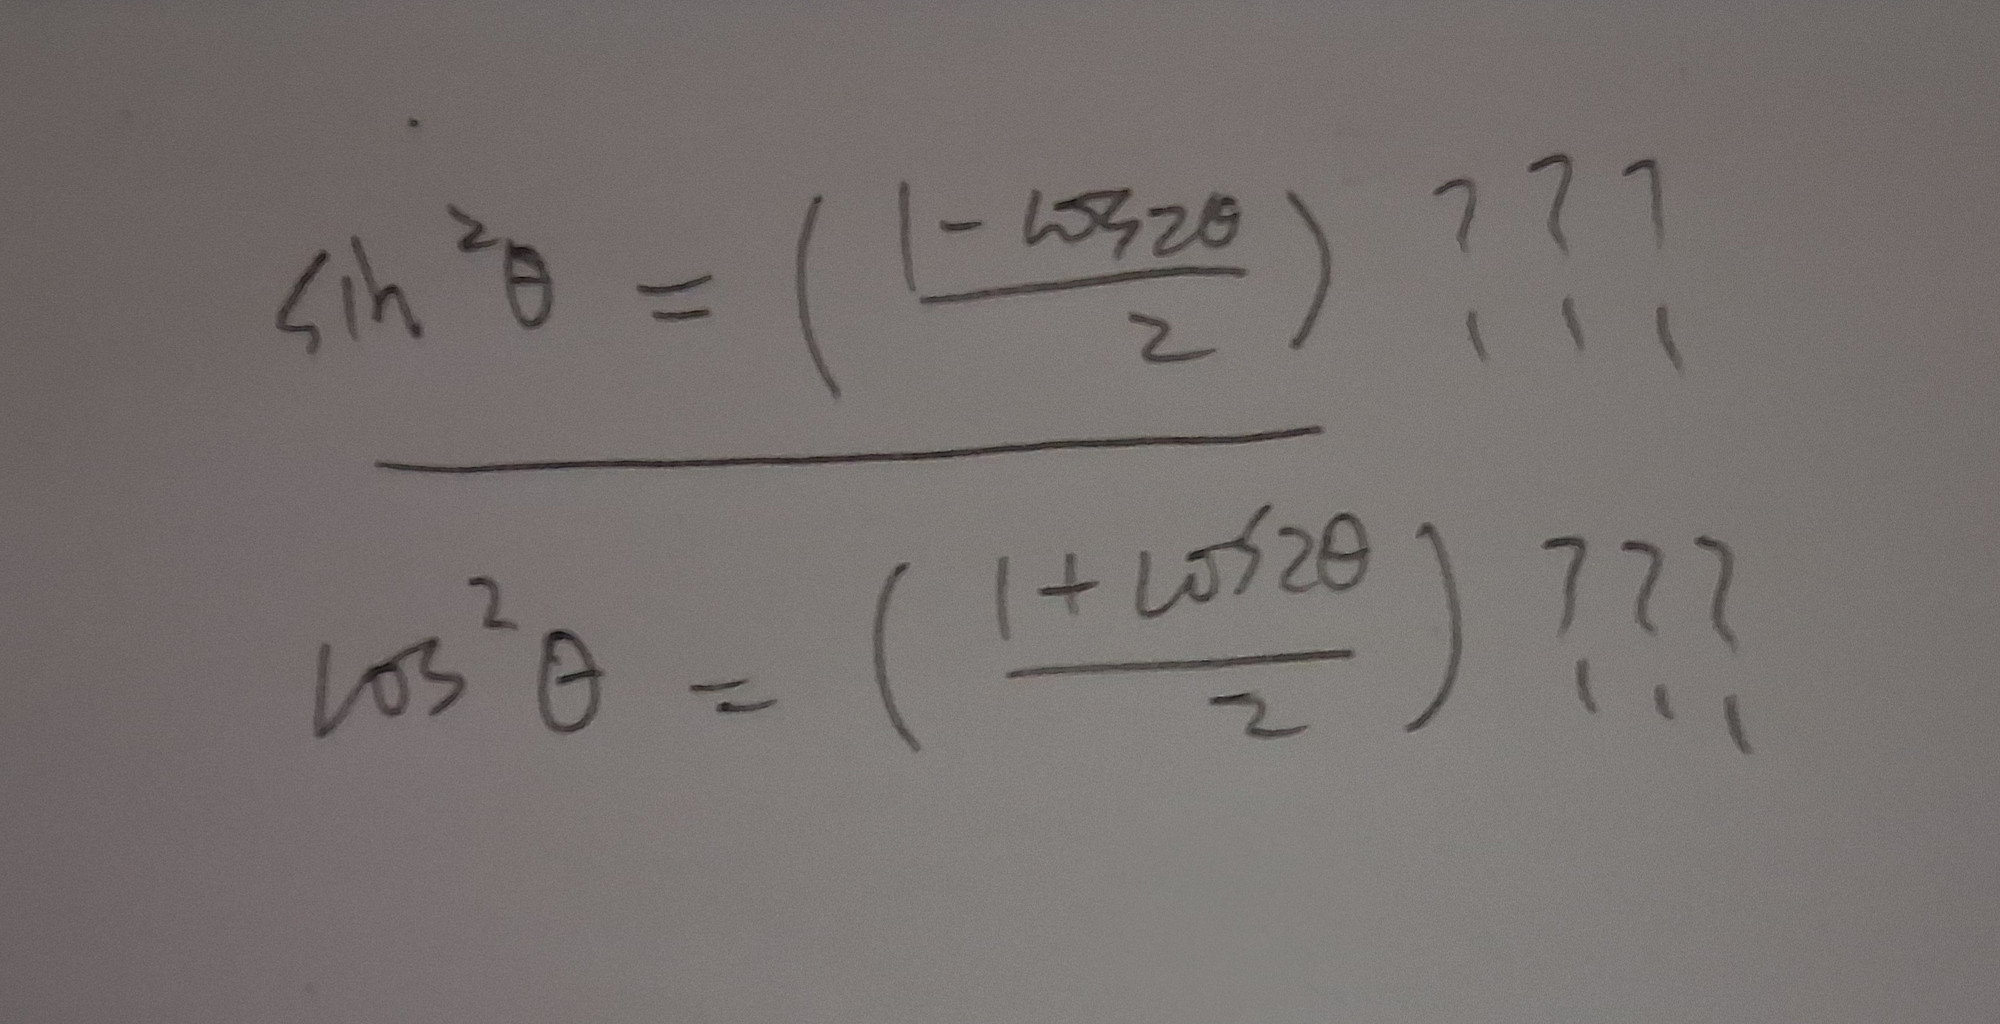 sin²θ = (1 - cos2θ / 2) ???
cos²θ = (1 + cos2θ / 2) ???